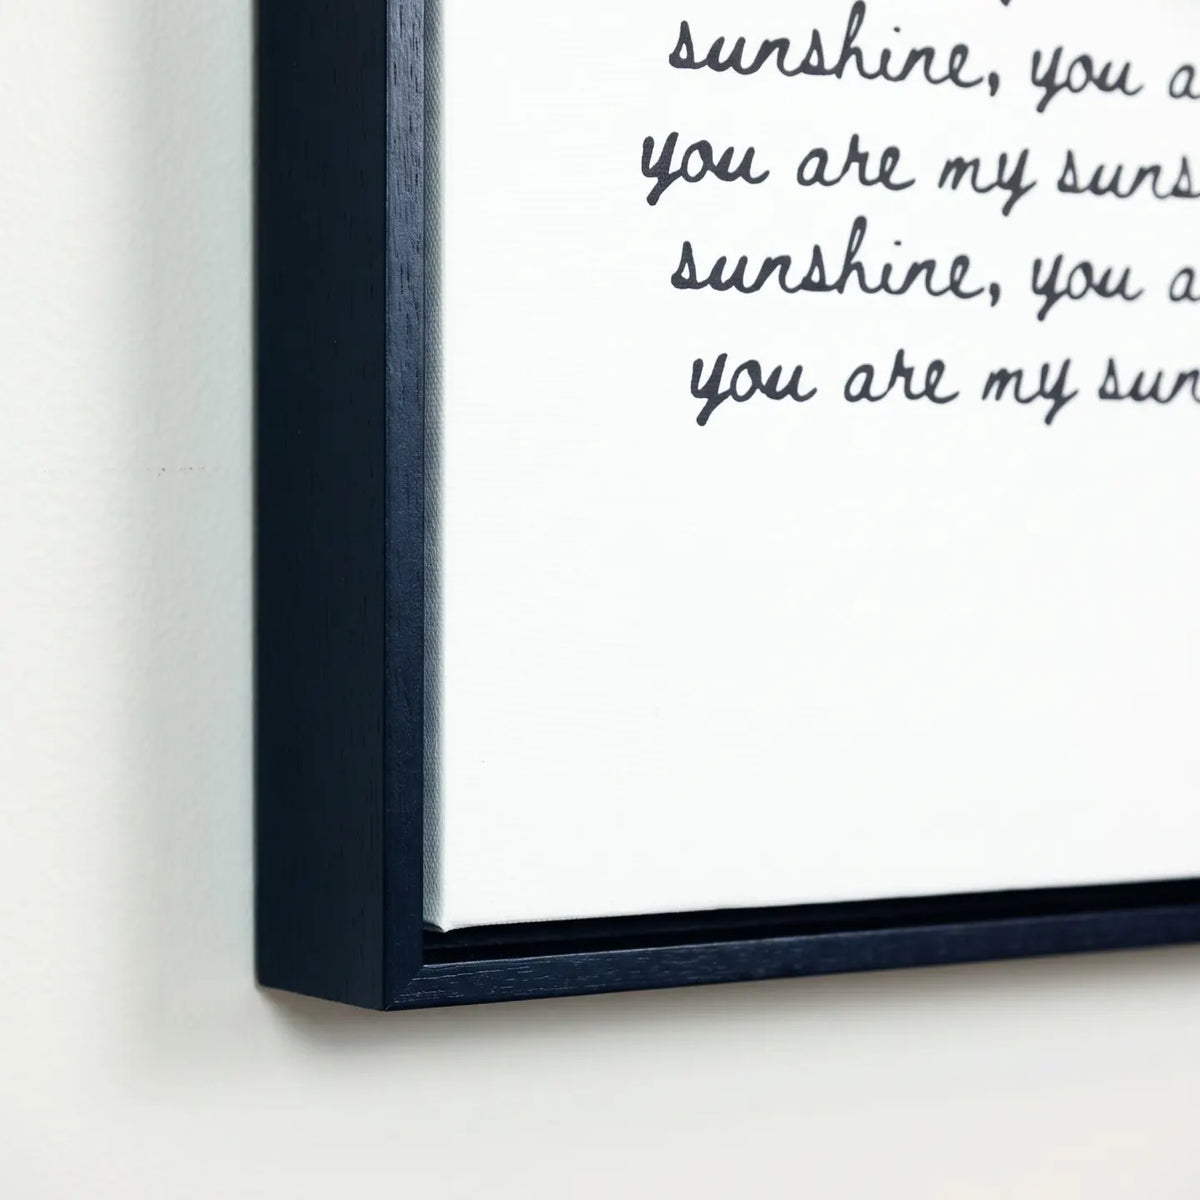 sunshine, you a
you are my suns
sunshine, you a
you are my sun